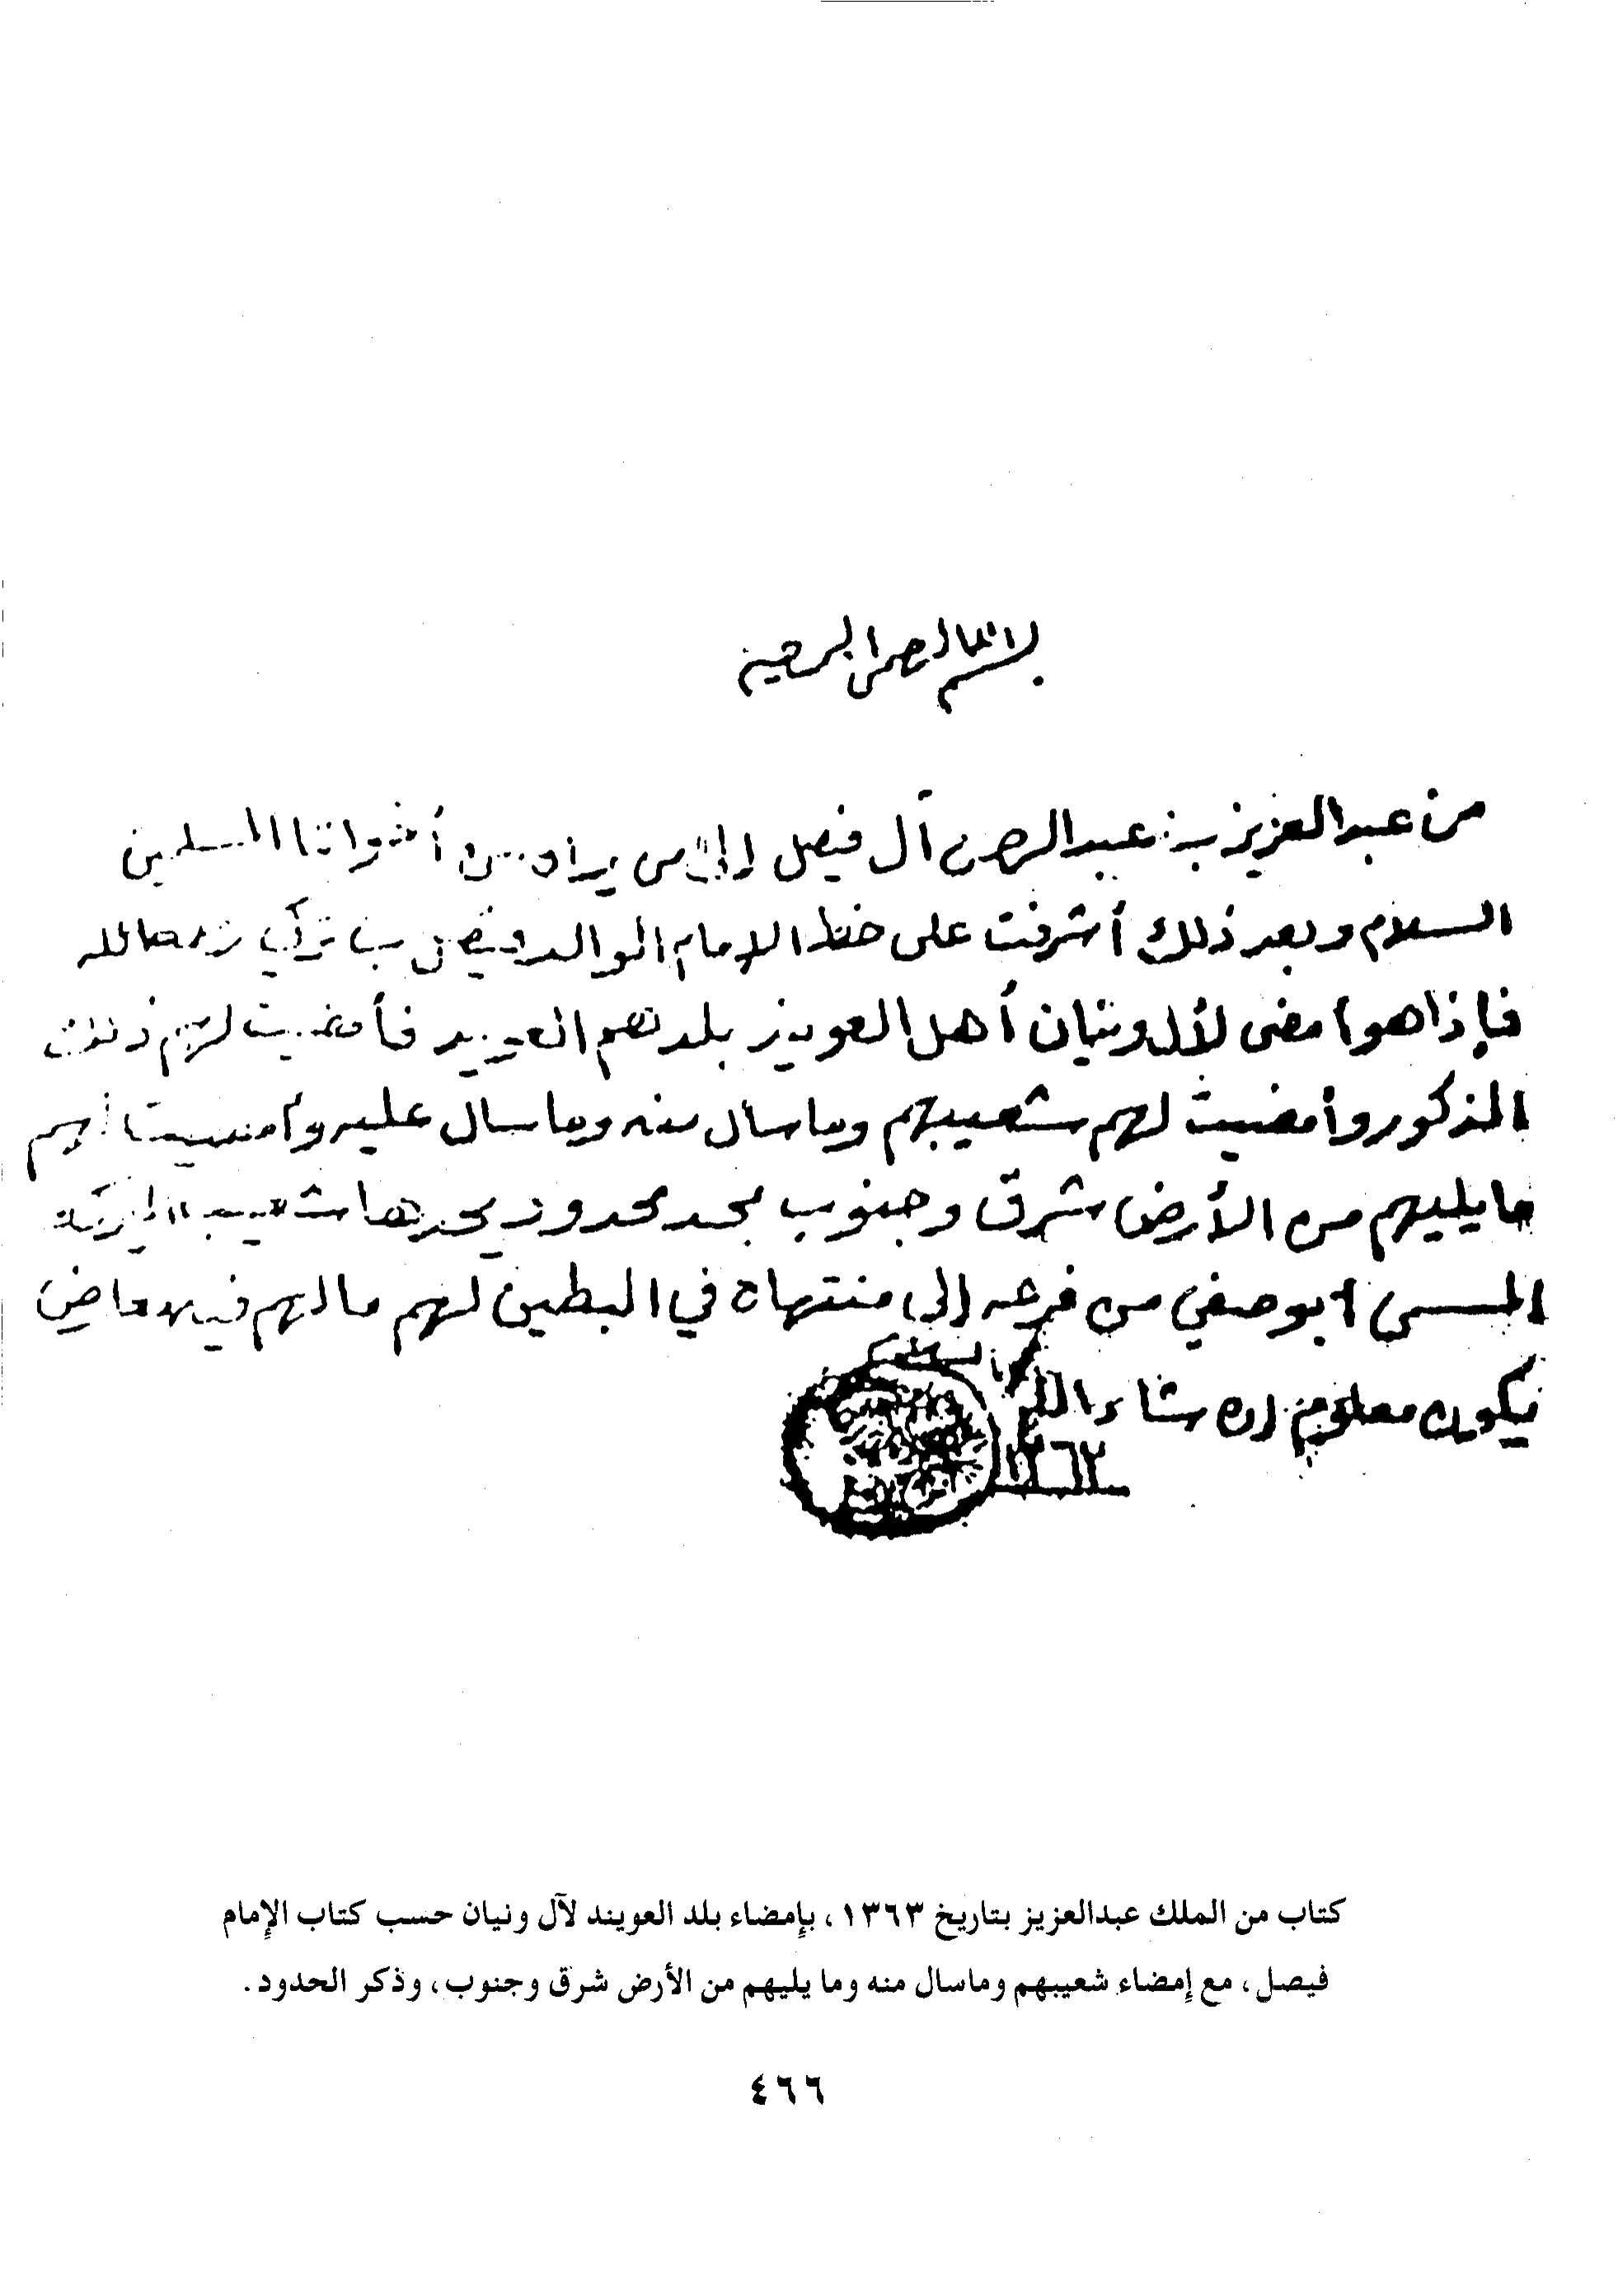 بسم الله الرحمن الرحيم
من عبدالعزيز بن عبدالرحمن آل فيصل إلى من يراه من أخواننا المسلمين
السلام وبعد ذلك أشرفت على خط الإمام الوالد فيصل بن تركي رحمه الله
فإذا هو امضى لآل ونيان أهل العويند بلدتهم العويند فأمضيت لهم ذلك
المذكور وأمضيت لهم شعيبهم وما سال منه وما سال عليه وأمضيت لهم
ما يليهم من الأرض شرق وجنوب بحد محدود يحدها شعيب
المسمى أبو صفي من فرعه إلى منتهاه في البطين لهم ما لهم فيه
يكون معلوم إن شاء الله والسلام
١٣٦٣
كتاب من الملك عبدالعزيز بتاريخ ١٣٦٣، بإمضاء بلد العويند لآل ونيان حسب كتاب الإمام
فيصل، مع إمضاء شعيبهم وماسال منه وما يليهم من الأرض شرق وجنوب، وذكر الحدود.
٤٦٦